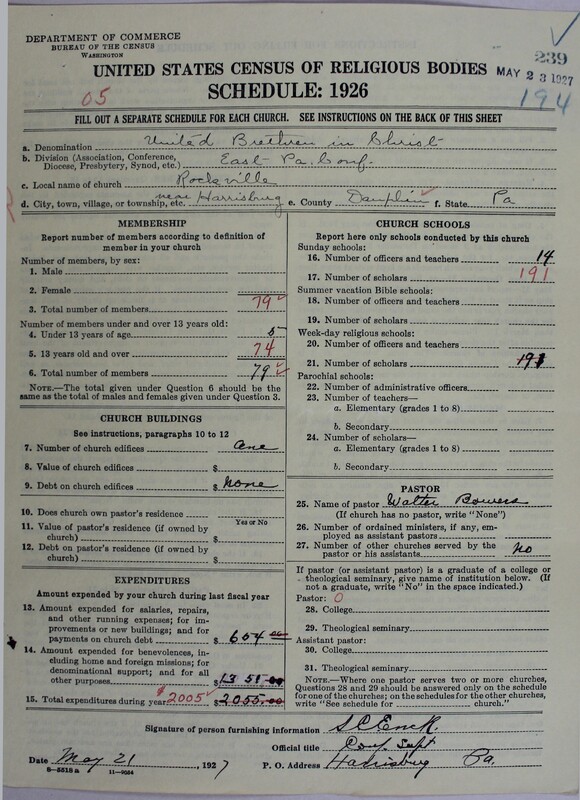 DEPARTMENT OF COMMERCE
BUREAU OF THE CENSUS
WASHINGTON
239
MAY 23 1927
194
UNITED STATES CENSUS OF RELIGIOUS BODIES
05
SCHEDULE: 1926
FILL OUT A SEPARATE SCHEDULE FOR EACH CHURCH. SEE INSTRUCTIONS ON THE BACK OF THIS SHEET
a. Denomination United Brethren in Christ
b. Division (Association, Conference, Diocese, Presbytery, Synod, etc.) East Pa. Conf.
c. Local name of church Rockville
d. City, town, village, or township, etc. near Harrisburg e. County Dauphin f. State Pa
MEMBERSHIP
Report number of members according to definition of
member in your church
Number of members, by sex:
1. Male
2. Female
3. Total number of members 79
Number of members under and over 13 years old:
4. Under 13 years of age 5
5. 13 years old and over 74
6. Total number of members 79
NOTE.—The total given under Question 6 should be
same as the total of males and females given under Question 3.
CHURCH BUILDINGS
See instructions, paragraphs 10 to 12
7. Number of church edifices one
8. Value of church edifices $
9. Debt on church edifices $ None
10. Does church own pastor's residence
Yes or No
11. Value of pastor's residence (if owned by
church) $
12. Debt on pastor's residence (if owned by
church) $
EXPENDITURES
Amount expended by your church during last fiscal year
13. Amount expended for salaries, repairs,
and other running expenses; for im-
provements or new buildings; and for
payments on church debt $ 654 00
14. Amount expended for benevolences, in-
cluding home and foreign missions; for
denominational support; and for all
other purposes $ 1351.00
15. Total expenditures during year $2005 $ 2055.00
CHURCH SCHOOLS
Report here only schools conducted by this church
Sunday schools:
16. Number of officers and teachers 14
17. Number of scholars 191
Summer vacation Bible schools:
18. Number of officers and teachers
19. Number of scholars
Week-day religious schools:
20. Number of officers and teachers
21. Number of scholars 191
Parochial schools:
22. Number of administrative officers
23. Number of teachers—
a. Elementary (grades 1 to 8)
b. Secondary
24. Number of scholars—
a. Elementary (grades 1 to 8)
b. Secondary
PASTOR
25. Name of pastor Walter Bowers
(If church has no pastor, write "None")
26. Number of ordained ministers, if any, em-
ployed as assistant pastors
27. Number of other churches served by the
pastor or his assistants No
If pastor (or assistant pastor) is a graduate of a college or
theological seminary, give name of institution below. (If
not a graduate, write "No" in the space indicated.)
Pastor: 0
28. College
29. Theological seminary
Assistant pastor:
30. College
31. Theological seminary
NOTE.—Where one pastor serves two or more churches,
Questions 28 and 29 should be answered only on the schedule
for one of the churches; on the schedules for the other churches,
write "See schedule for church."
Signature of person furnishing information S C Enck
Official title Conf Supt
Date May 21, 1927 P. O. Address Harrisburg Pa.
8—5518 a 11—9054